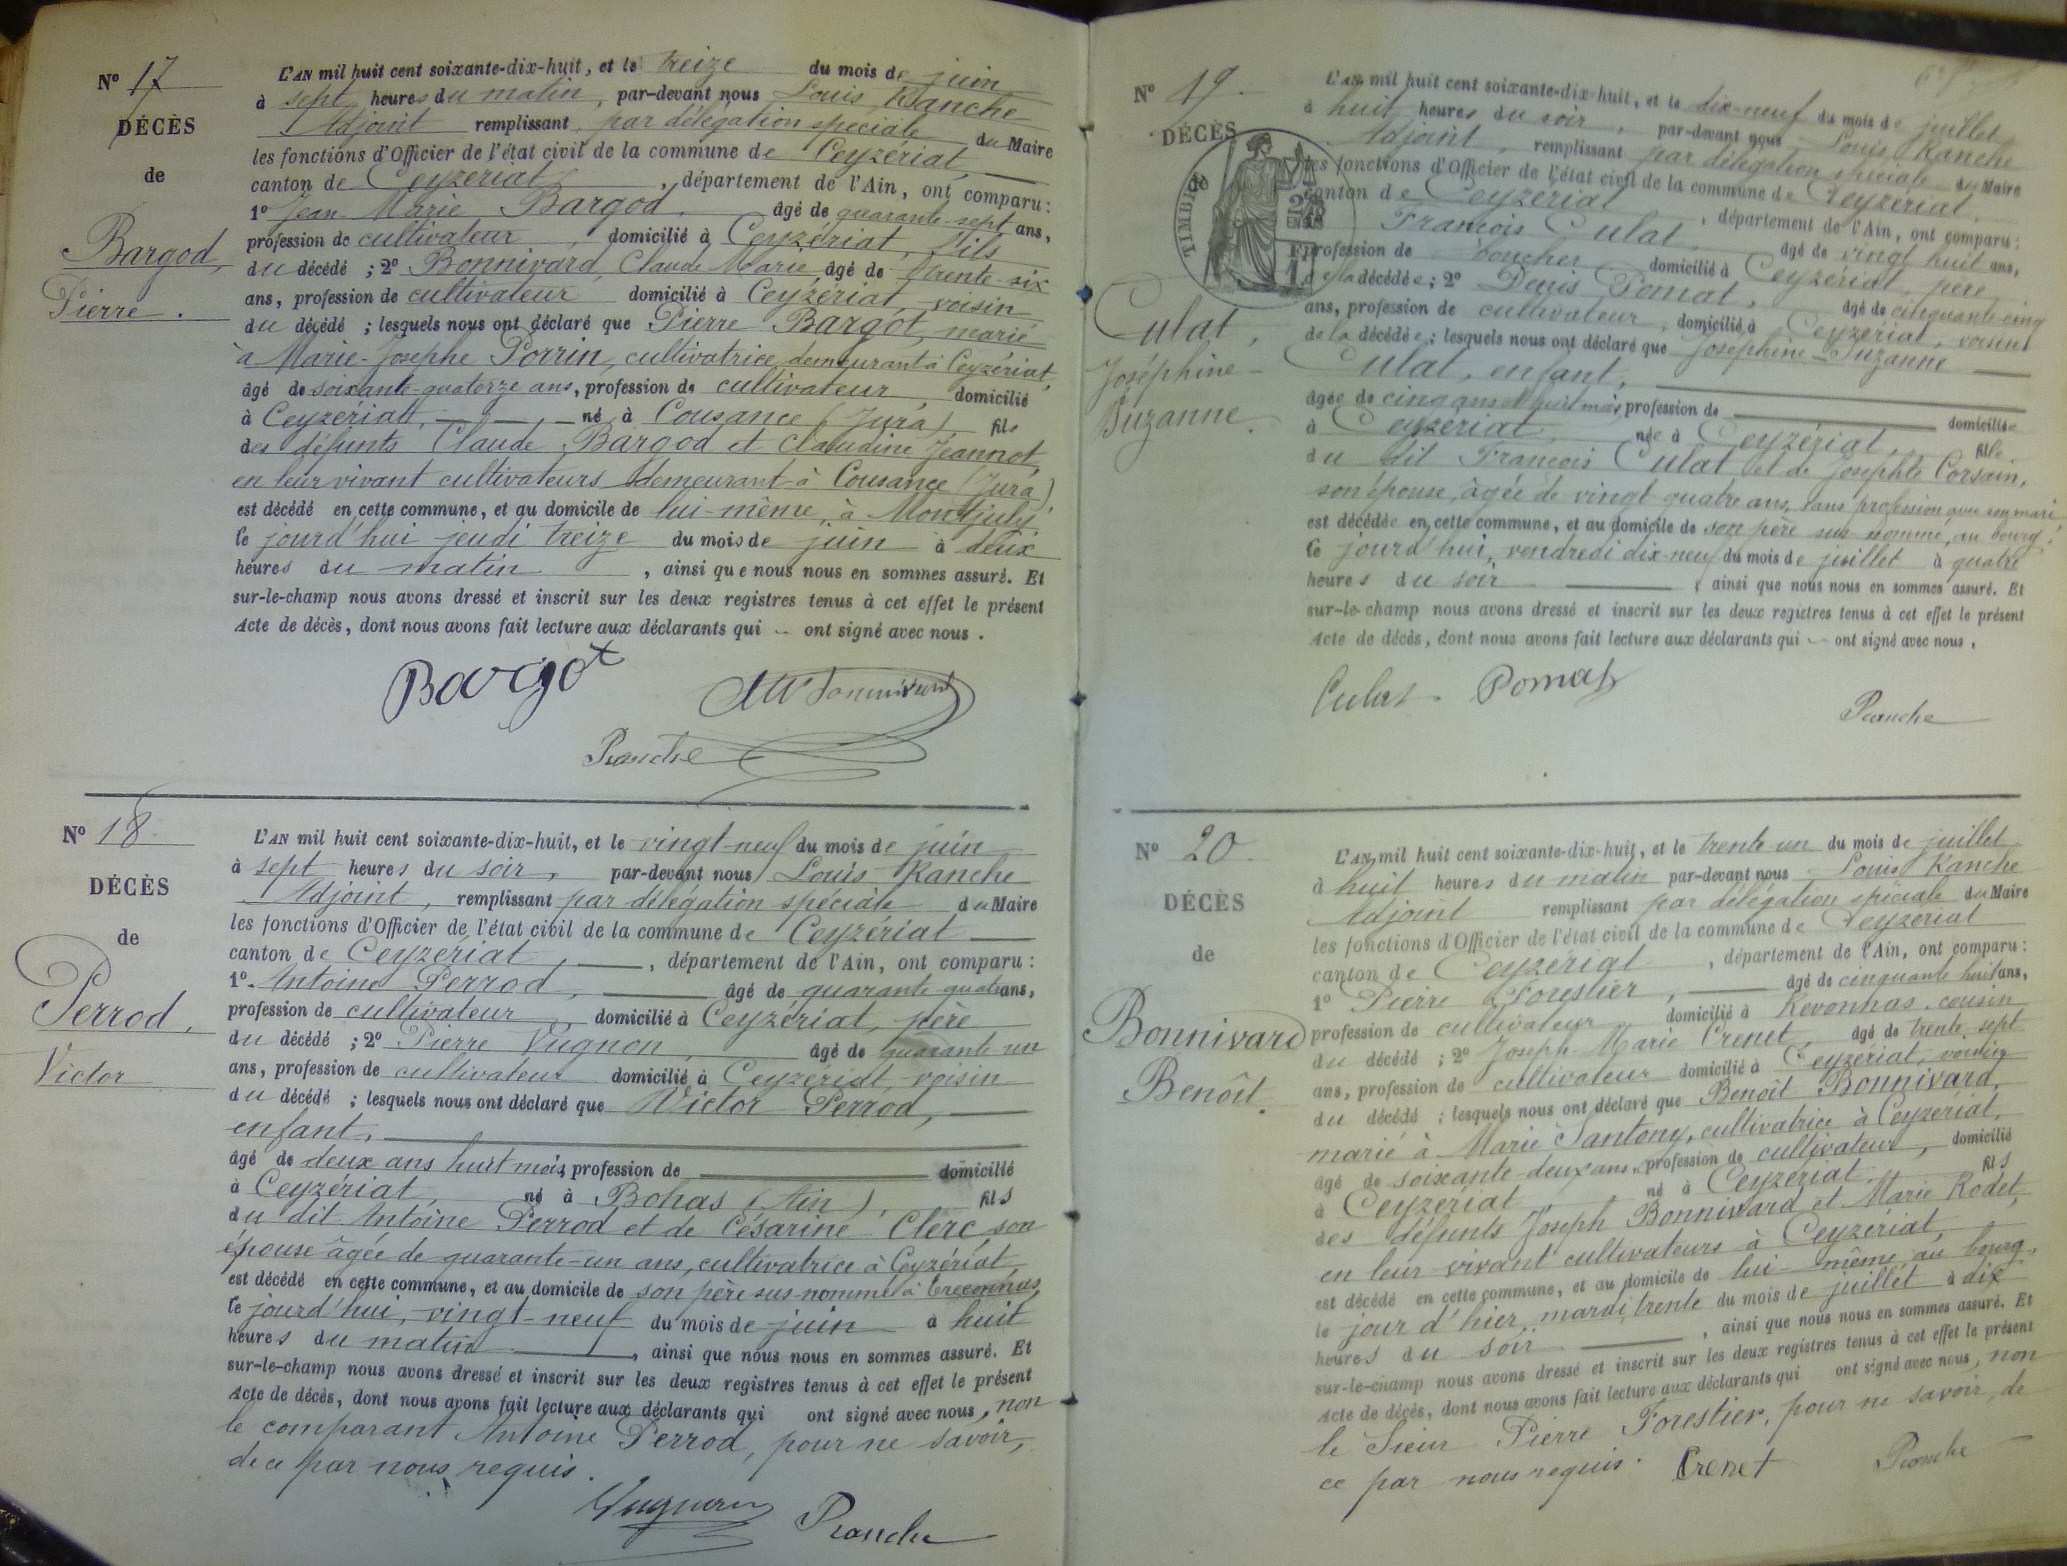 N° 17
DÉCÈS
de
Bargod,
Pierre.
L'AN mil huit cent soixante-dix-huit, et le treize du mois de juin
à sept heures du matin, par-devant nous Louis Ranche
Adjoint remplissant par délégation spéciale du Maire
les fonctions d'Officier de l'état civil de la commune de Ceyzériat
canton de Ceyzériat, département de l'Ain, ont comparu:
1° Jean Marie Bargod, âgé de quarante-sept ans,
profession de cultivateur, domicilié à Ceyzériat, fils
du décédé; 2° Bonnivard, Claude Marie âgé de trente-six
ans, profession de cultivateur domicilié à Ceyzériat, voisin
du décédé; lesquels nous ont déclaré que Pierre Bargot, marié
à Marie-Josephe Porrin, cultivatrice, demeurant à Ceyzériat,
âgé de soixante-quatorze ans, profession de cultivateur, domicilié
à Ceyzériat, né à Cousance (Jura) fils
des défunts Claude Bargod et Claudine Jeannot,
en leur vivant cultivateurs demeurant à Cousance (Jura)
est décédé en cette commune, et au domicile de lui-même, à Montjuly,
le jourd'hui jeudi treize du mois de juin à deux
heures du matin, ainsi que nous nous en sommes assuré. Et
sur-le-champ nous avons dressé et inscrit sur les deux registres tenus à cet effet le présent
Acte de décès, dont nous avons fait lecture aux déclarants qui ont signé avec nous.
Bargot
Bonnivard
Ranche
N° 18
DÉCÈS
de
Perrod,
Victor
L'AN mil huit cent soixante-dix-huit, et le vingt-neuf du mois de juin
à sept heures du soir, par-devant nous Louis Ranche
Adjoint, remplissant par délégation spéciale du Maire
les fonctions d'Officier de l'état civil de la commune de Ceyzériat
canton de Ceyzériat, département de l'Ain, ont comparu:
1°. Antoine Perrod, âgé de quarante quatre ans,
profession de cultivateur, domicilié à Ceyzériat, père
du décédé; 2° Pierre Vugnon, âgé de quarante un
ans, profession de cultivateur domicilié à Ceyzériat, voisin
du décédé; lesquels nous ont déclaré que Victor Perrod,
enfant,
âgé de deux ans huit mois, profession de domicilié
à Ceyzériat, né à Bohas (Ain), fils
du dit Antoine Perrod et de Césarine Clerc, son
épouse âgée de quarante-un ans, cultivatrice à Ceyzériat,
est décédé en cette commune, et au domicile de son père sus-nommé à
le jourd'hui, vingt-neuf du mois de juin à huit
heures du matin, ainsi que nous nous en sommes assuré. Et
sur-le-champ nous avons dressé et inscrit sur les deux registres tenus à cet effet le présent
Acte de décès, dont nous avons fait lecture aux déclarants qui ont signé avec nous, non
le comparant Antoine Perrod, pour ne savoir,
de ce par nous requis.
Vugnon
Ranche
N° 19.
DÉCÈS
de
TIMBRE
Culat,
Joséphine-
Suzanne.
L'AN mil huit cent soixante-dix-huit, et le dix-neuf du mois de juillet
à huit heures du soir, par-devant nous Louis Ranche
Adjoint, remplissant par délégation spéciale du Maire
les fonctions d'Officier de l'état civil de la commune de Ceyzériat,
canton de Ceyzériat, département de l'Ain, ont comparu:
François Culat, âgé de vingt huit ans,
profession de boucher domicilié à Ceyzériat, père
de la décédée; 2° Denis Pomat, âgé de cinquante-cinq
ans, profession de cultivateur, domicilié à Ceyzériat, voisin
de la décédée; lesquels nous ont déclaré que Joséphine-Suzanne
Culat, enfant,
âgée de cinq ans huit mois, profession de domiciliée
à Ceyzériat, née à Ceyzériat, fille
du dit François Culat et de Josephte Corsain,
son épouse, âgée de vingt quatre ans, sans profession avec son mari
est décédée en cette commune, et au domicile de son père sus-nommé, au bourg,
le jourd'hui, vendredi dix-neuf du mois de juillet à quatre
heures du soir, ainsi que nous nous en sommes assuré. Et
sur-le-champ nous avons dressé et inscrit sur les deux registres tenus à cet effet le présent
Acte de décès, dont nous avons fait lecture aux déclarants qui ont signé avec nous.
Culat. Pomat
Ranche
N° 20.
DÉCÈS
de
Bonnivard
Benoît.
L'AN mil huit cent soixante-dix-huit, et le trente un du mois de juillet
à huit heures du matin par-devant nous Louis Ranche
Adjoint remplissant par délégation spéciale du Maire
les fonctions d'Officier de l'état civil de la commune de Ceyzériat
canton de Ceyzériat, département de l'Ain, ont comparu:
1° Pierre Forestier, âgé de cinquante huit ans,
profession de cultivateur domicilié à Revonnas, cousin
du décédé; 2° Joseph-Marie Crenet, âgé de trente sept
ans, profession de cultivateur domicilié à Ceyzériat, voisin
du décédé; lesquels nous ont déclaré que Benoît Bonnivard,
marié à Marie Santony, cultivatrice à Ceyzériat,
âgé de soixante-deux ans, profession de cultivateur, domicilié
à Ceyzériat né à Ceyzériat fils
des défunts Joseph Bonnivard et Marie Rodet,
en leur vivant cultivateurs à Ceyzériat,
est décédé en cette commune, et au domicile de lui-même au bourg,
le jour d'hier, mardi, trente du mois de juillet à dix
heures du soir, ainsi que nous nous en sommes assuré. Et
sur-le-champ nous avons dressé et inscrit sur les deux registres tenus à cet effet le présent
Acte de décès, dont nous avons fait lecture aux déclarants qui ont signé avec nous, non
le Sieur Pierre Forestier, pour ne savoir, de
ce par nous requis. Crenet
Ranche